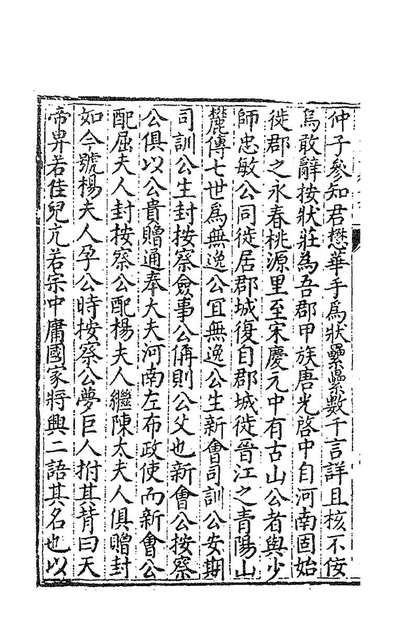 仲子參知君懋華手爲狀纍纍數千言詳且核不佞
烏敢辭按狀莊爲吾郡甲族唐光啓中自河南固始
徙郡之永春桃源里至宋慶元中有古山公者與少
師忠敏公同徙居郡城復自郡城徙晉江之青陽山
麓傳七世爲無逸公冝無逸公生新會司訓公安期
司訓公生封按察僉事公侢則公父也新會公按察
公俱以公貴贈通奉大夫河南左布政使而新會公
配屈夫人封按察公配楊夫人繼陳太夫人俱贈封
如今號楊夫人孕公時按察公夢巨人拊其背曰天
帝畀若佳兒亢若宗中庸國家將興二語其名也以